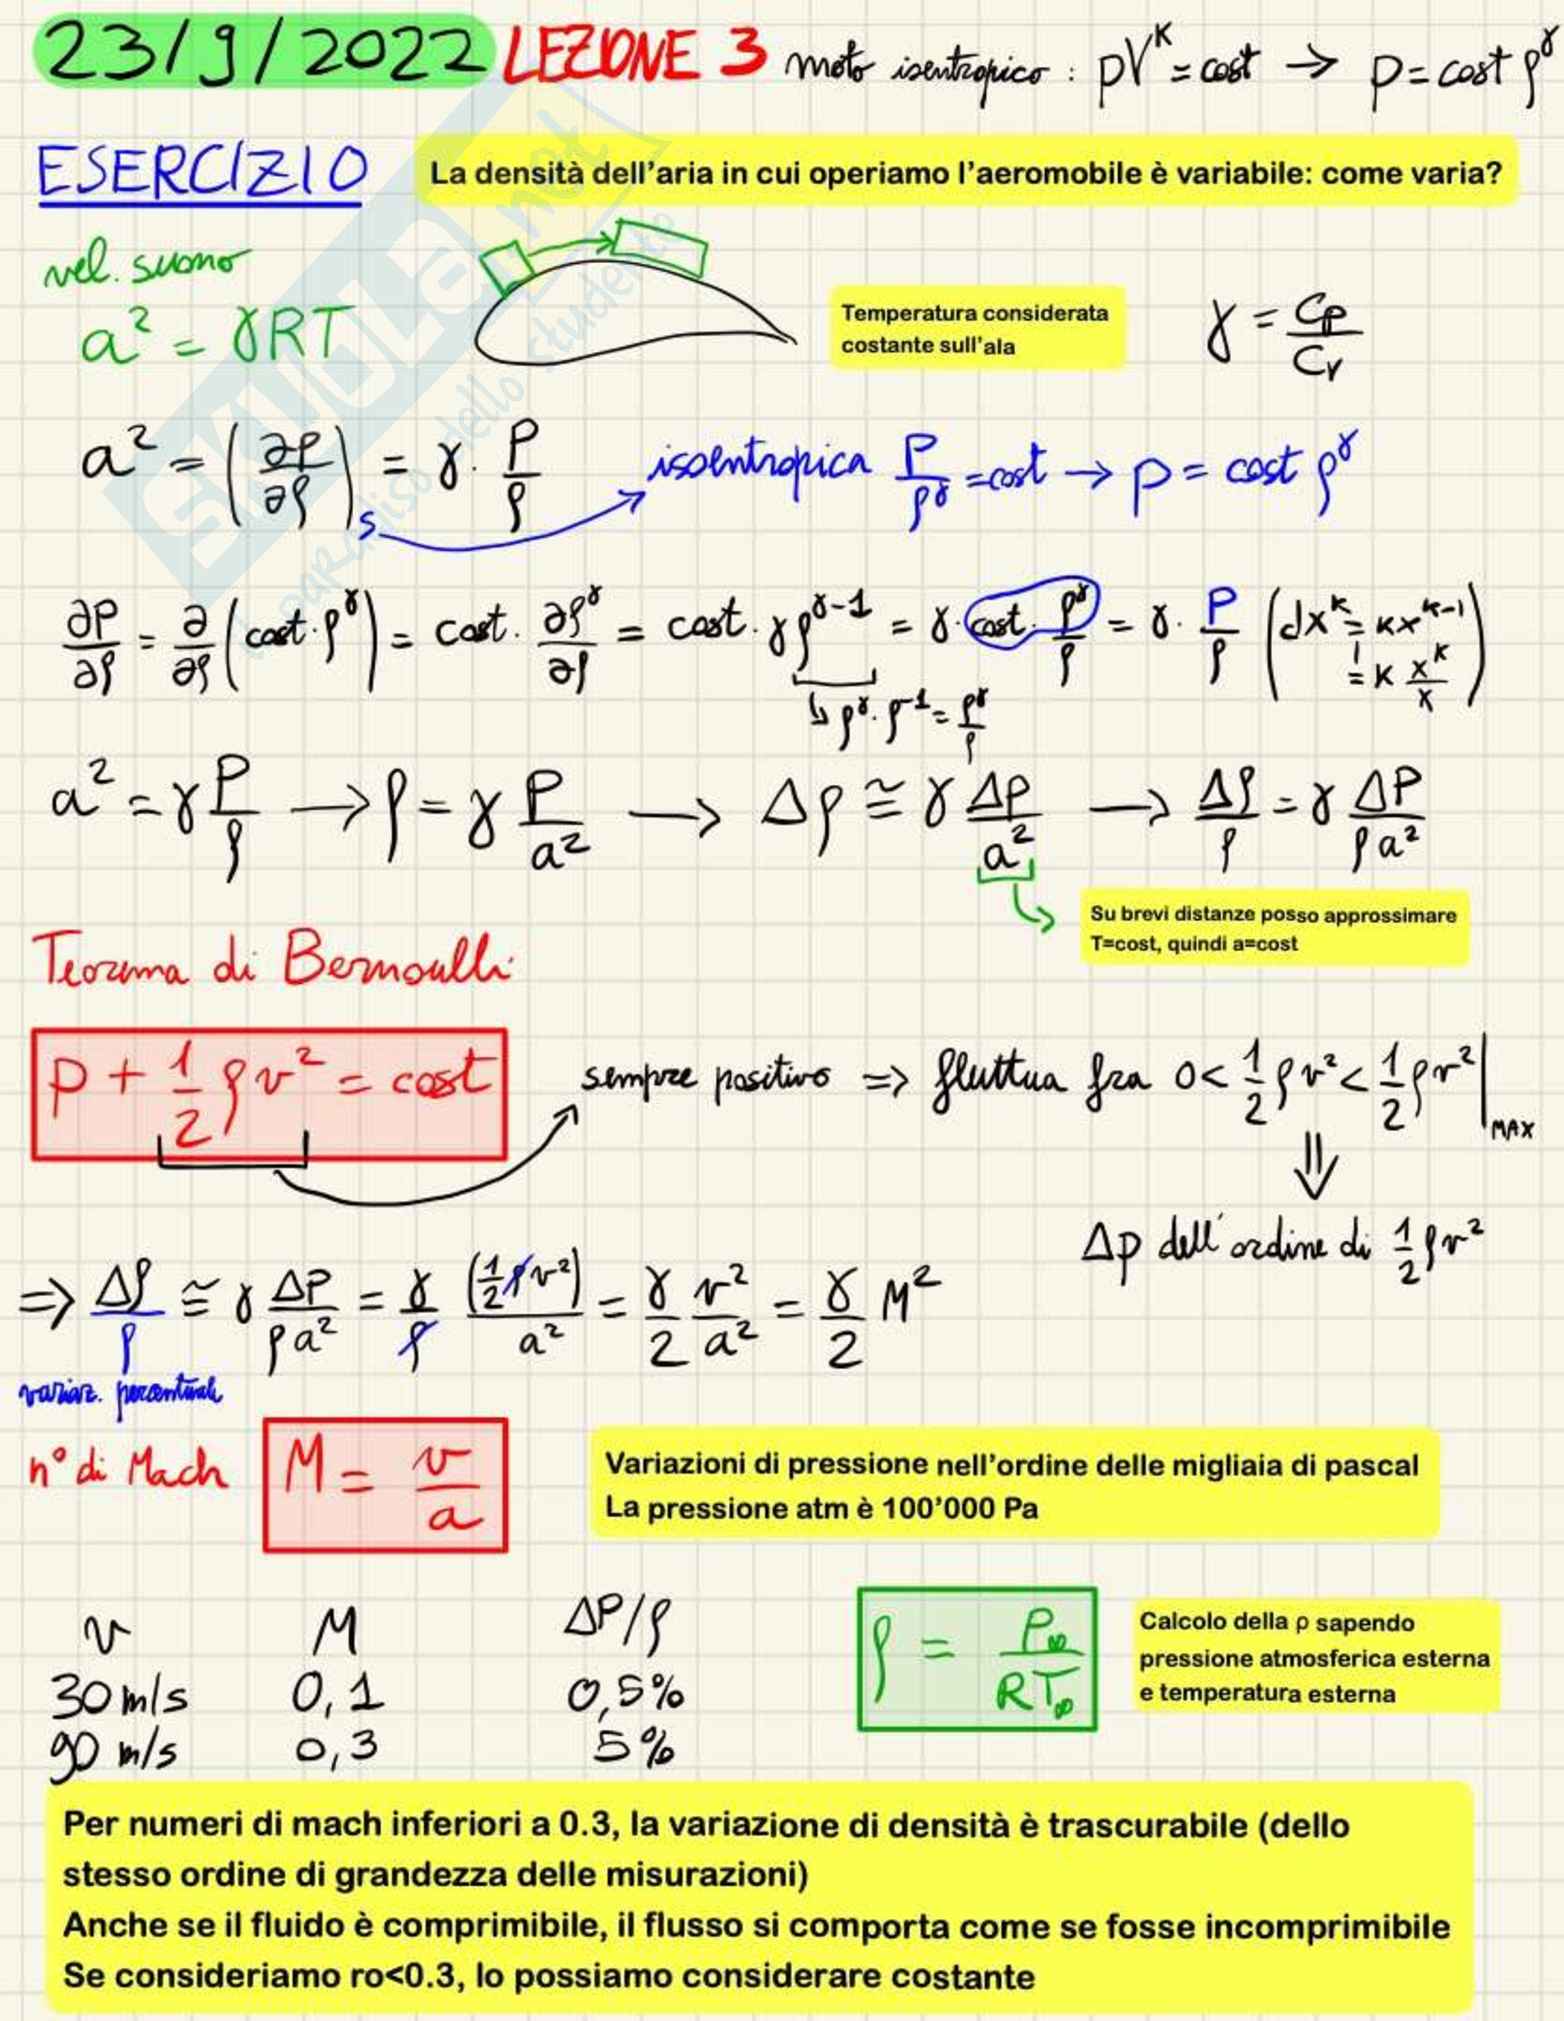 23/9/2022 LEZIONE 3 moto isentropico : pV^K = cost → p = cost ρ^γ
ESERCIZIO La densità dell'aria in cui operiamo l'aeromobile è variabile: come varia?
vel. suono
a² = γRT
Temperatura considerata
costante sull'ala
γ = Cp/Cv
a² = (∂P/∂ρ)s = γ · P/ρ isoentropica P/ρ^γ = cost → p = cost ρ^γ
∂P/∂ρ = ∂/∂ρ (cost · ρ^γ) = cost · ∂ρ^γ/∂ρ = cost · γρ^γ-1 = γ · cost · ρ^γ/ρ = γ · P/ρ (dx^k = kx^k-1 = k x^k/x)
↳ ρ^γ · ρ^-1 = ρ^γ/ρ
a² = γ P/ρ → ρ = γ P/a² → Δρ ≅ γ Δp/a² → Δρ/ρ = γ ΔP/ρa²
Su brevi distanze posso approssimare
T=cost, quindi a=cost
Teorema di Bernoulli
p + 1/2 ρv² = cost
sempre positivo => fluttua fra 0 < 1/2 ρv² < 1/2 ρv²|MAX
⇓
Δp dell'ordine di 1/2 ρv²
=> Δρ/ρ ≅ γ ΔP/ρa² = γ/ρ (1/2 ρv²)/a² = γ/2 v²/a² = γ/2 M²
variaz. percentuale
n° di Mach M = v/a
Variazioni di pressione nell'ordine delle migliaia di pascal
La pressione atm è 100'000 Pa
v M ΔP/ρ
30 m/s 0,1 0,5%
90 m/s 0,3 5%
ρ = P∞/RT∞
Calcolo della ρ sapendo
pressione atmosferica esterna
e temperatura esterna
Per numeri di mach inferiori a 0.3, la variazione di densità è trascurabile (dello
stesso ordine di grandezza delle misurazioni)
Anche se il fluido è comprimibile, il flusso si comporta come se fosse incomprimibile
Se consideriamo ro<0.3, lo possiamo considerare costante
SKUOLA.net
il paradiso dello studente